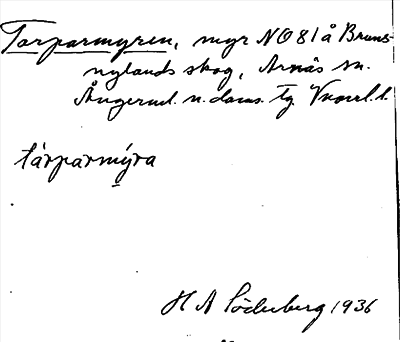 Torparmyren, myr NO 81 å Bruns-
nylands skog, Arnäs sn.
Ångerml. n. doms. tg. Vnorrl. l.
tárparmýra
H A Söderberg 1936